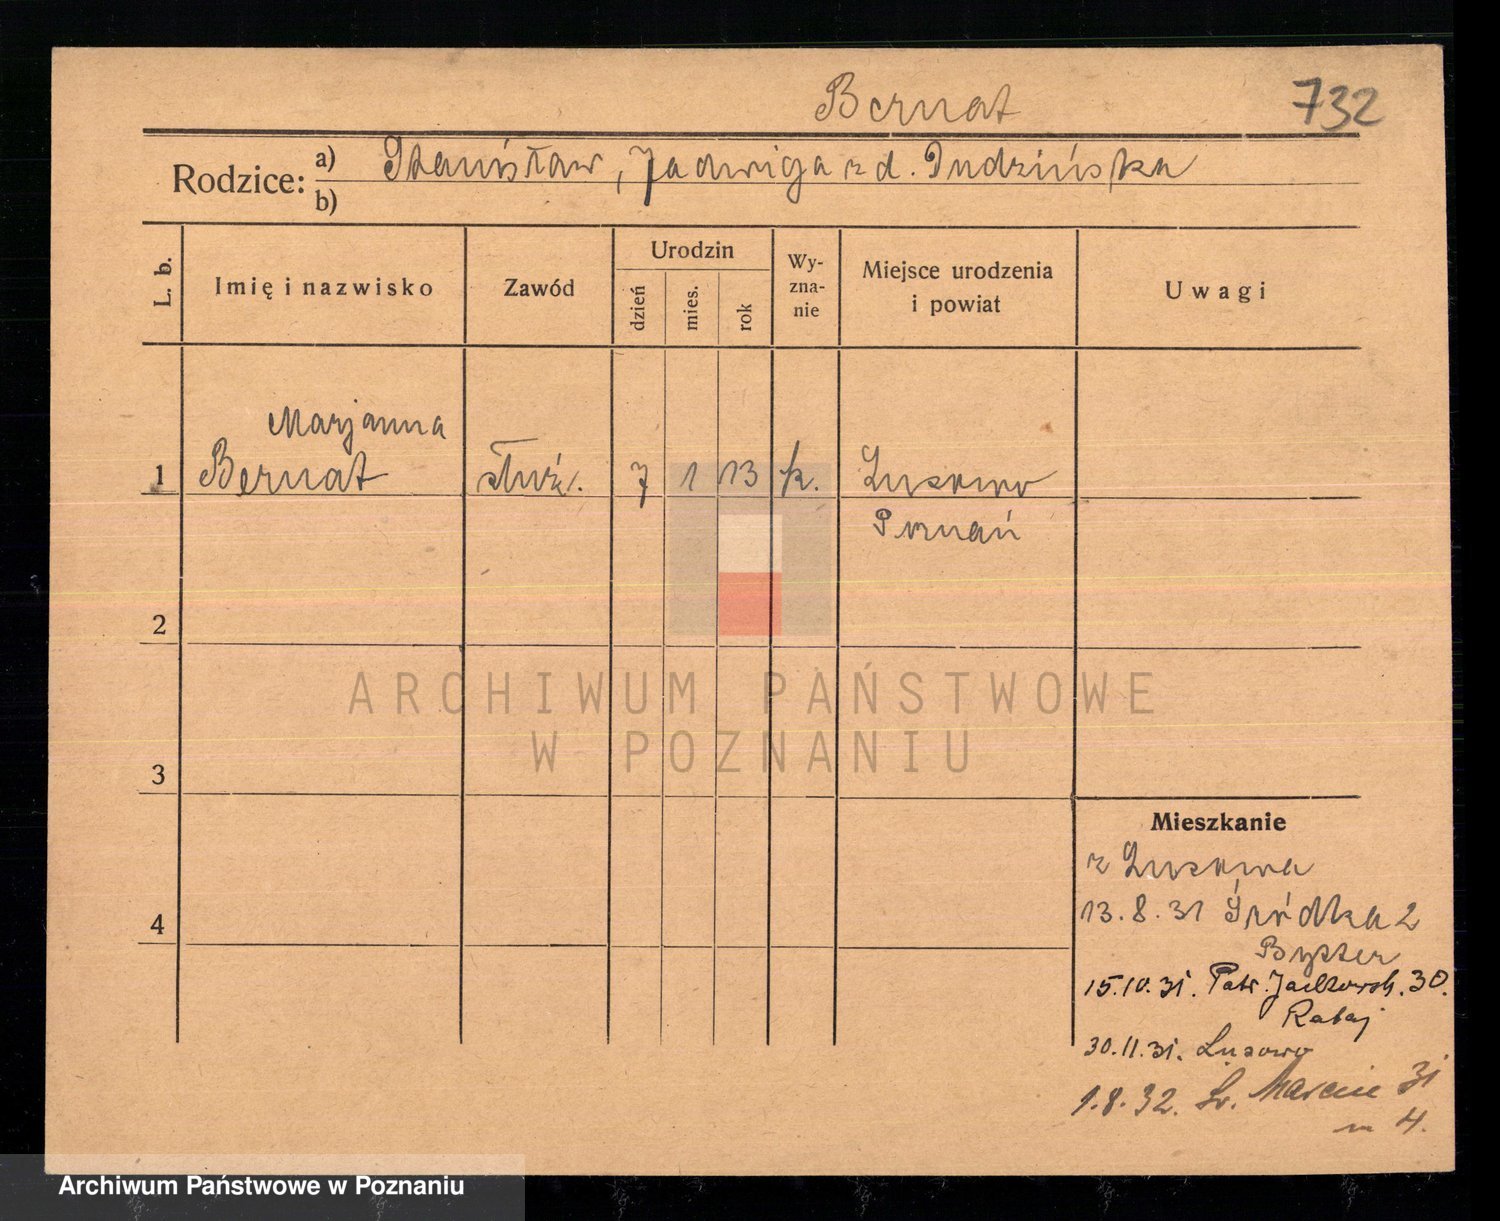 Bernat 732
Rodzice: a) Stanisław, Jadwiga z d. Dudzińska
b)
L. b. Imię i nazwisko Zawód Urodzin dzień mies. rok Wy-zna-nie Miejsce urodzenia i powiat Uwagi
Marjanna
1 Bernat służ. 7 1 13 k. Lusowo
Poznań
2
3
4
ARCHIWUM PAŃSTWOWE
W POZNANIU
Mieszkanie
z Lusowa
13.8.31 Śródka 2
15.10.31. Patr. Jackowsk. 30.
Rataj
30.11.31. Lusowo
1.8.32. Św. Marcin 31
m 4.
Archiwum Państwowe w Poznaniu